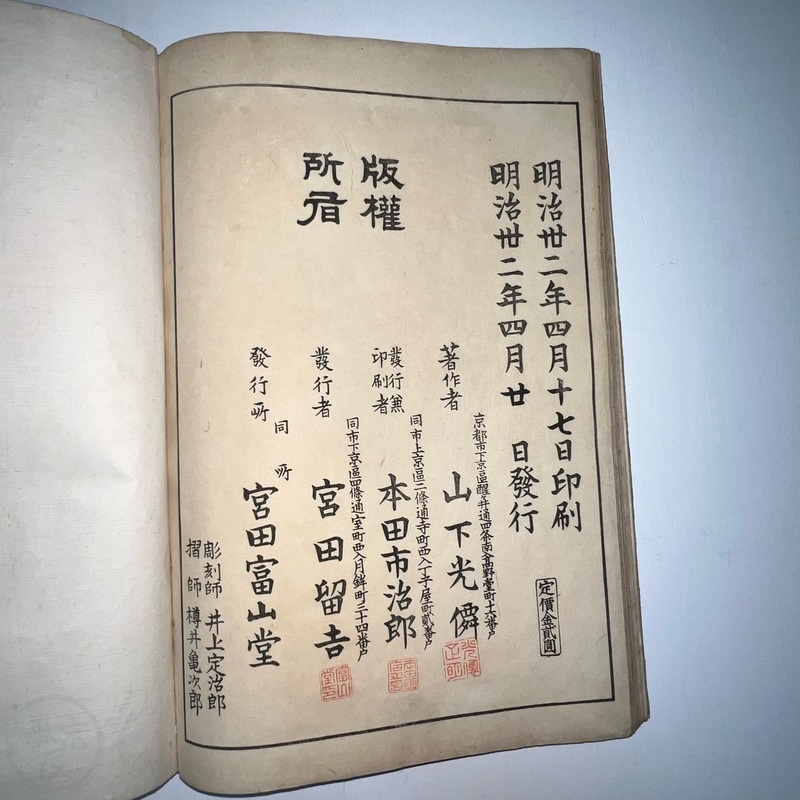 明治丗二年四月十七日印刷
明治丗二年四月廿 日發行
定價金貳圓
版權
所有
京都市下京區醒ヶ井通四条南入髙野堂町十六番戸
著作者 山下光儔
同市上京區二條通寺町西入丁子屋町貳番戸
發行兼
印刷者 本田市治郎
同市下京區四條通室町西入月鉾町三十四番戸
發行者 宮田留吉
同所
發行所 宮田富山堂
彫刻師 井上定治郎
摺師 樽井亀次郎